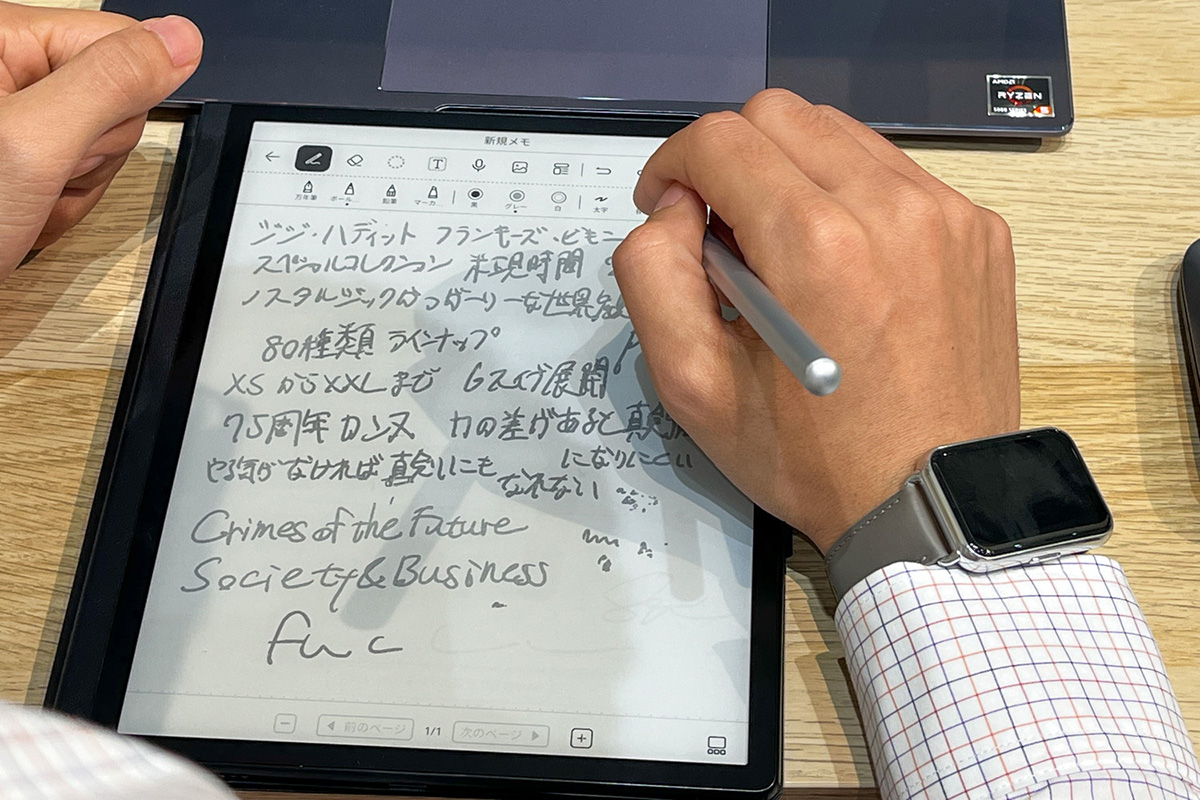 AMD
RYZEN
5
新規メモ
T
万年筆 ボール… 鉛筆 マーカ… 黒 グレー 白 太字
ジジ・ハディット フランキーズ・ビキニ
スペシャルコレクション 来 現時間
ノスタルジック かつ ガーリーな世界
80種類 ラインナップ
XSからXXLまで 6 展開
75周年カンヌ 力の差があると真剣
になりにくい
やる気がなければ真剣にも なれない
Crimes of the Future
Society&Business
func
前のページ 1/1 次のページ